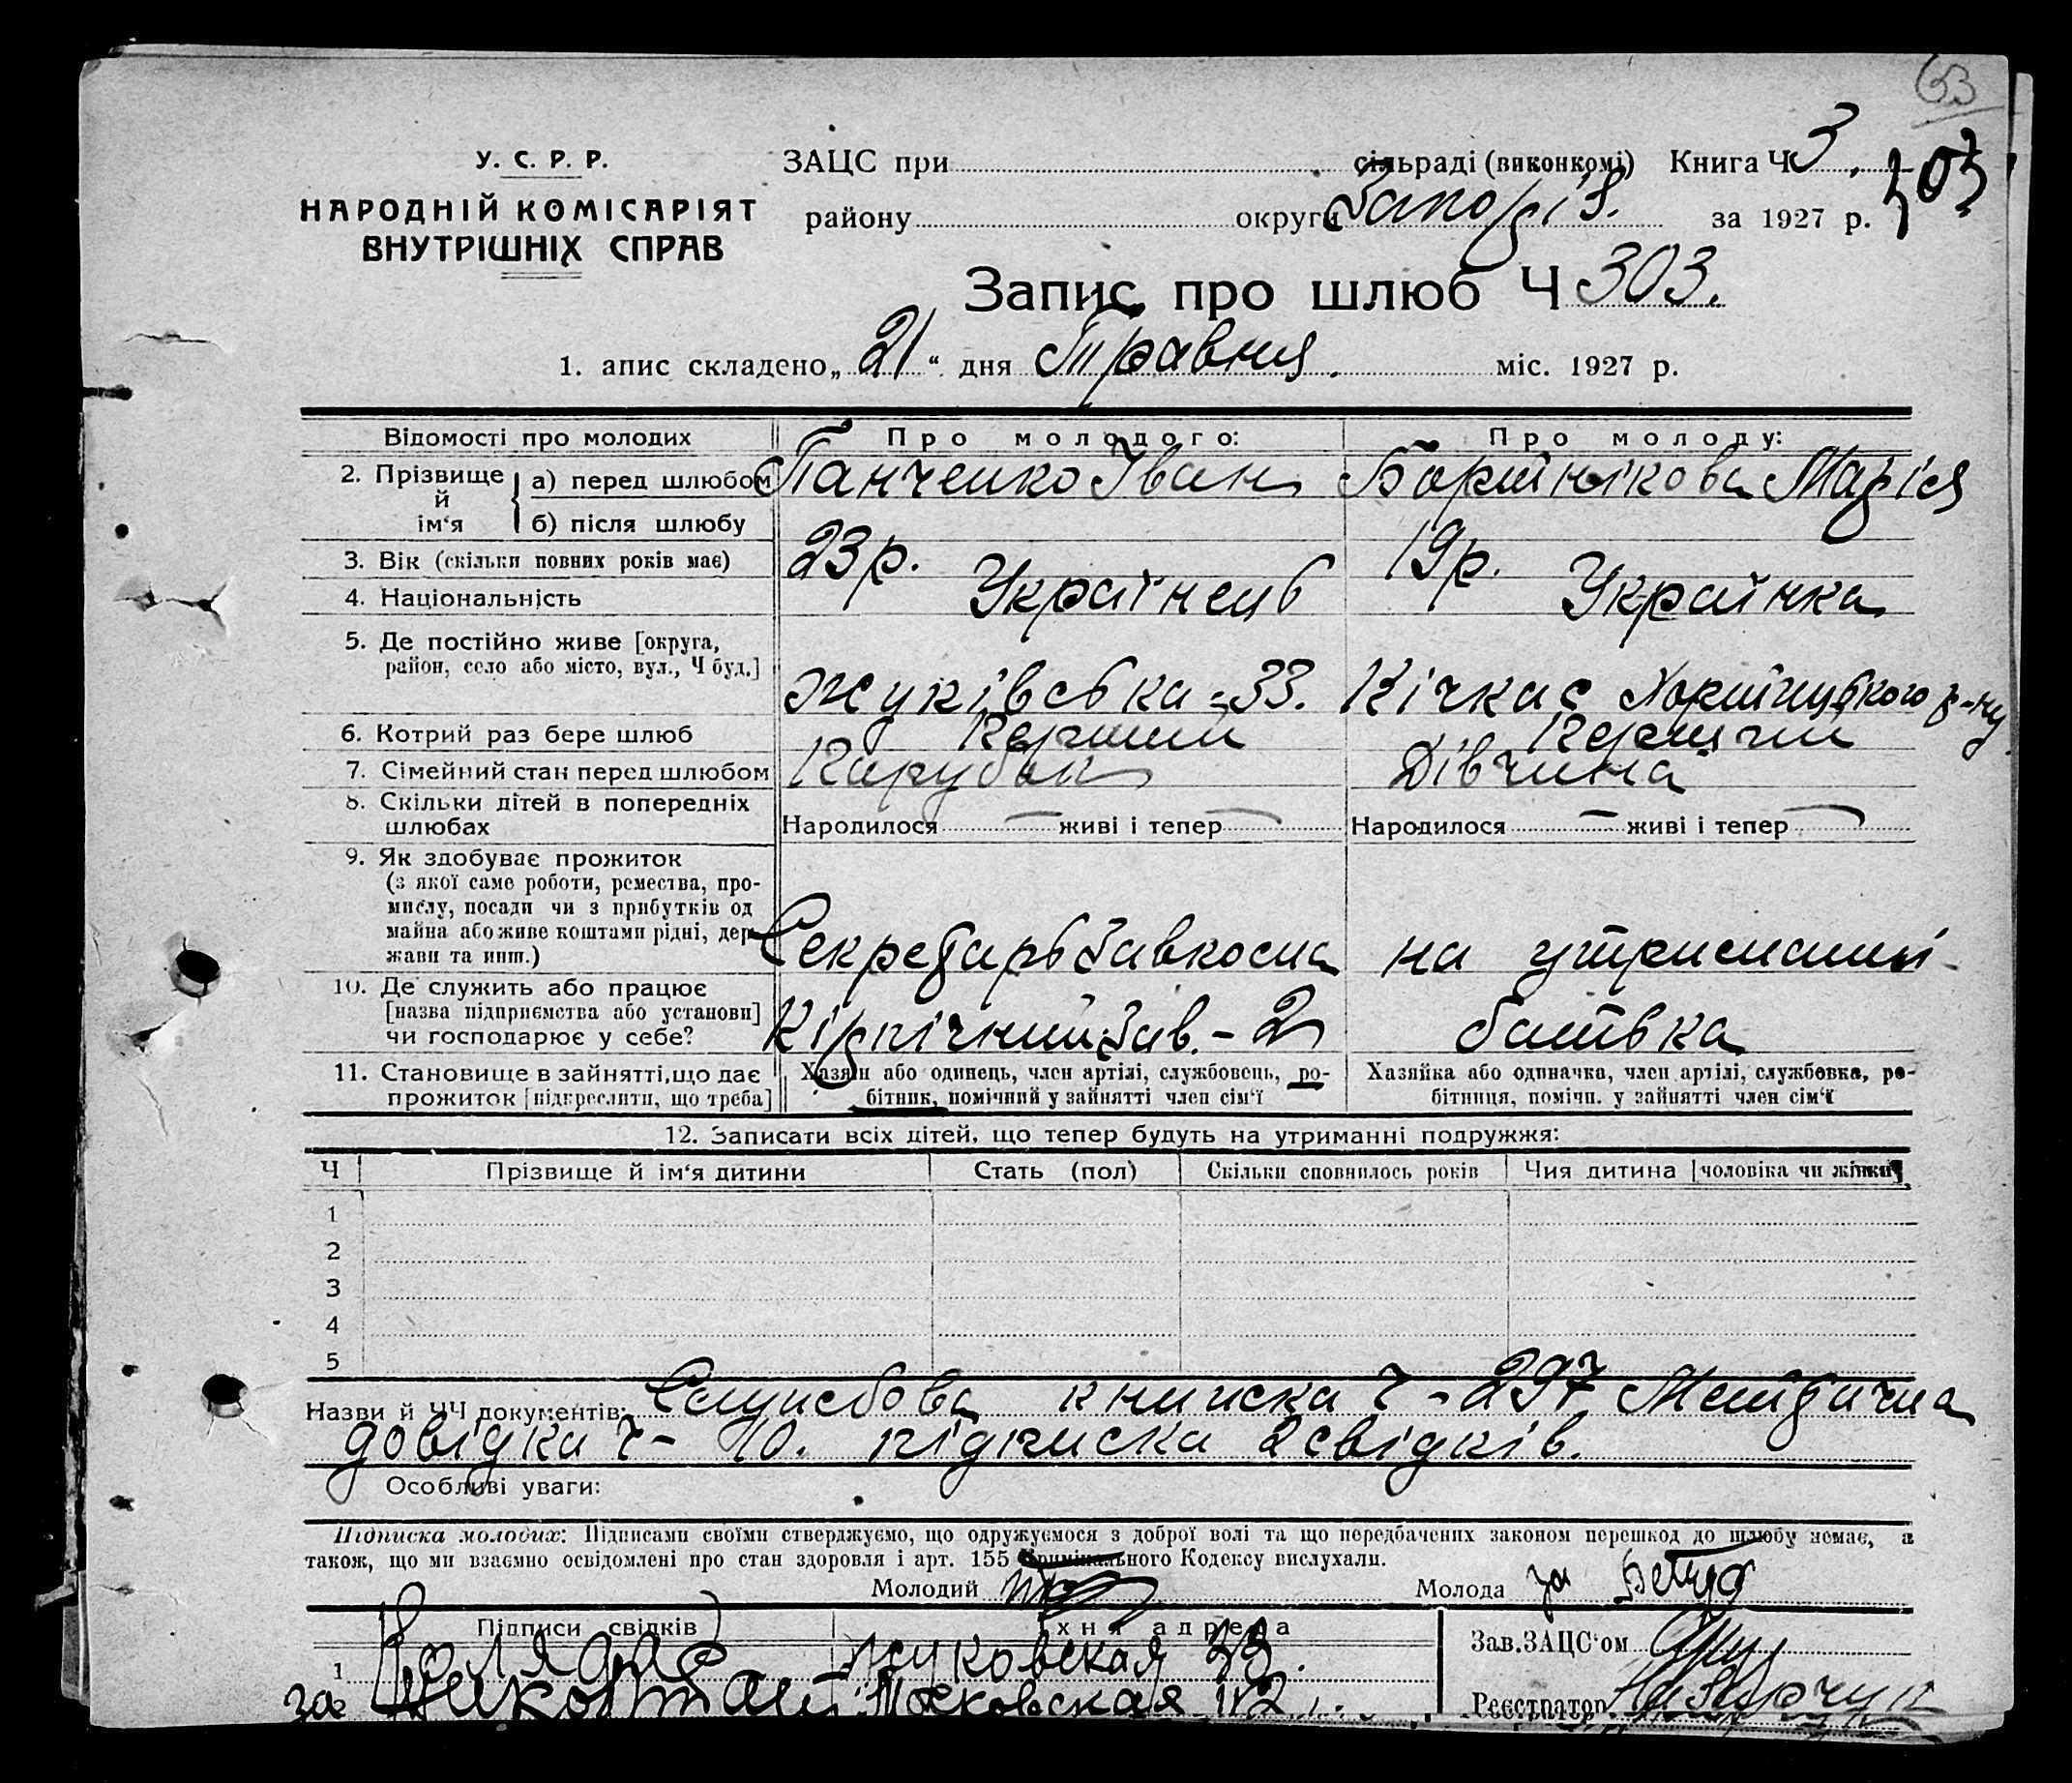 63
У. С. Р. Р.
НАРОДНІЙ КОМІСАРІЯТ
ВНУТРІШНІХ СПРАВ
ЗАЦС при сільраді (виконкомі) Книга Ч 3.
303
району округи Запоріз. за 1927 р.
Запис про шлюб Ч 303.
1. апис складено „21“ дня Травня. міс. 1927 р.
Відомості про молодих Про молодого: Про молоду:
2. Прізвище й ім‘я
а) перед шлюбом Панченко Іван Марія
б) після шлюбу
3. Вік (скільки повних років має) 23 р. 19 р.
4. Національність Українець Українка
5. Де постійно живе [округа,
район, село або місто, вул., Ч буд.] Жуківська - 33. Кічкас Хортицького р-ну
6. Котрий раз бере шлюб Перший Перший
7. Сімейний стан перед шлюбом Парубок Дівчина
8. Скільки дітей в попередніх
шлюбах Народилося — живі і тепер — Народилося — живі і тепер —
9. Як здобуває прожиток
(з якої саме роботи, ремества, про-
мислу, посади чи з прибутків од
майна або живе коштами рідні, дер-
жави та инш.) Секретарь Завкома на утриманні
10. Де служить або працює
[назва підприємства або установи]
чи господарює у себе? Кірпічний Зав. - 2 батька
11. Становище в зайнятті, що дає
прожиток [підкреслити, що треба]
Хазяїн або одинець, член артілі, службовець, ро-
бітник, помічний у зайнятті член сім‘ї
Хазяйка або одиначка, член артілі, службовка, ро-
бітниця, помічн. у зайнятті член сім‘ї
12. Записати всіх дітей, що тепер будуть на утриманні подружжя:
Ч Прізвище й ім‘я дитини Стать (пол) Скільки сповнилось років Чия дитина [чоловіка чи жінки]
1
2
3
4
5
Назви й ЧЧ документів: Служебова книжка ч - 297
довідка ч - 10. підписка 2 свідків.
Особливі уваги:
Підписка молодих: Підписами своїми стверджуємо, що одружуємося з доброї волі та що передбачених законом перешкод до шлюбу немає, а
також, що ми взаємно освідомлені про стан здоровля і арт. 155 Кримінального Кодексу вислухали.
Молодий Молода
Підписи свідків Їхня адреса
1 Жуковская 33.
за Московская
Зав. ЗАЦС‘ом
Реєстратор